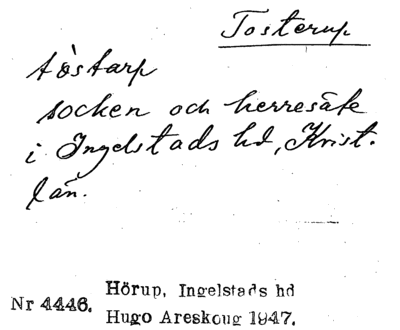 Tosterup
tòstarp
socken och herresäte
i Ingelstads hd, Krist.
län.
Hörup, Ingelstads hd
Nr 4446.
Hugo Areskoug 1947.